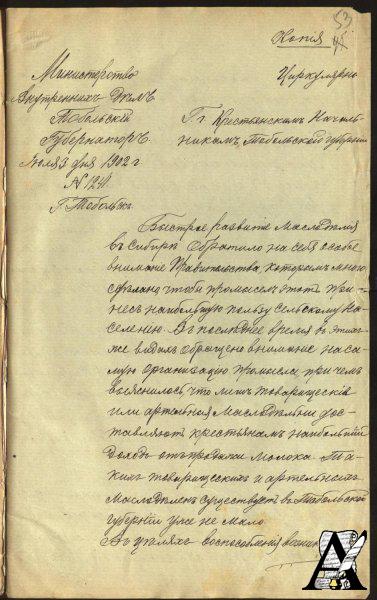 53
Копия
Циркулярно
Министерство
Внутреннихъ Делъ
Тобольскій
Губернаторъ
Іюля 3 дня 1902 г
N 1241
Г. Тобольскъ
Гг. Крестьянскимъ Началь-
никамъ, Тобольской губерніи
Быстрое развитие Маслоделія
въ Сибири обратило на себя особое
вниманіе Правительства, которымъ много
сделано, чтобы промыселъ этотъ при-
несъ наибольшую пользу сельскому на-
селенію. Въ последнее время въ этихъ
же видахъ обращено вниманіе на са-
мую организацію промысла, при чемъ
выяснилось, что лишь товарищескія
или артельныя Маслодельни дос-
тавляютъ крестьянамъ наибольшій
доходъ отъ продажи молока. Та-
кихъ товарищескихъ и артельныхъ
Маслоделенъ существуетъ въ Тобольской
губерніи уже не мало.
Въ целяхъ воспособленія
А